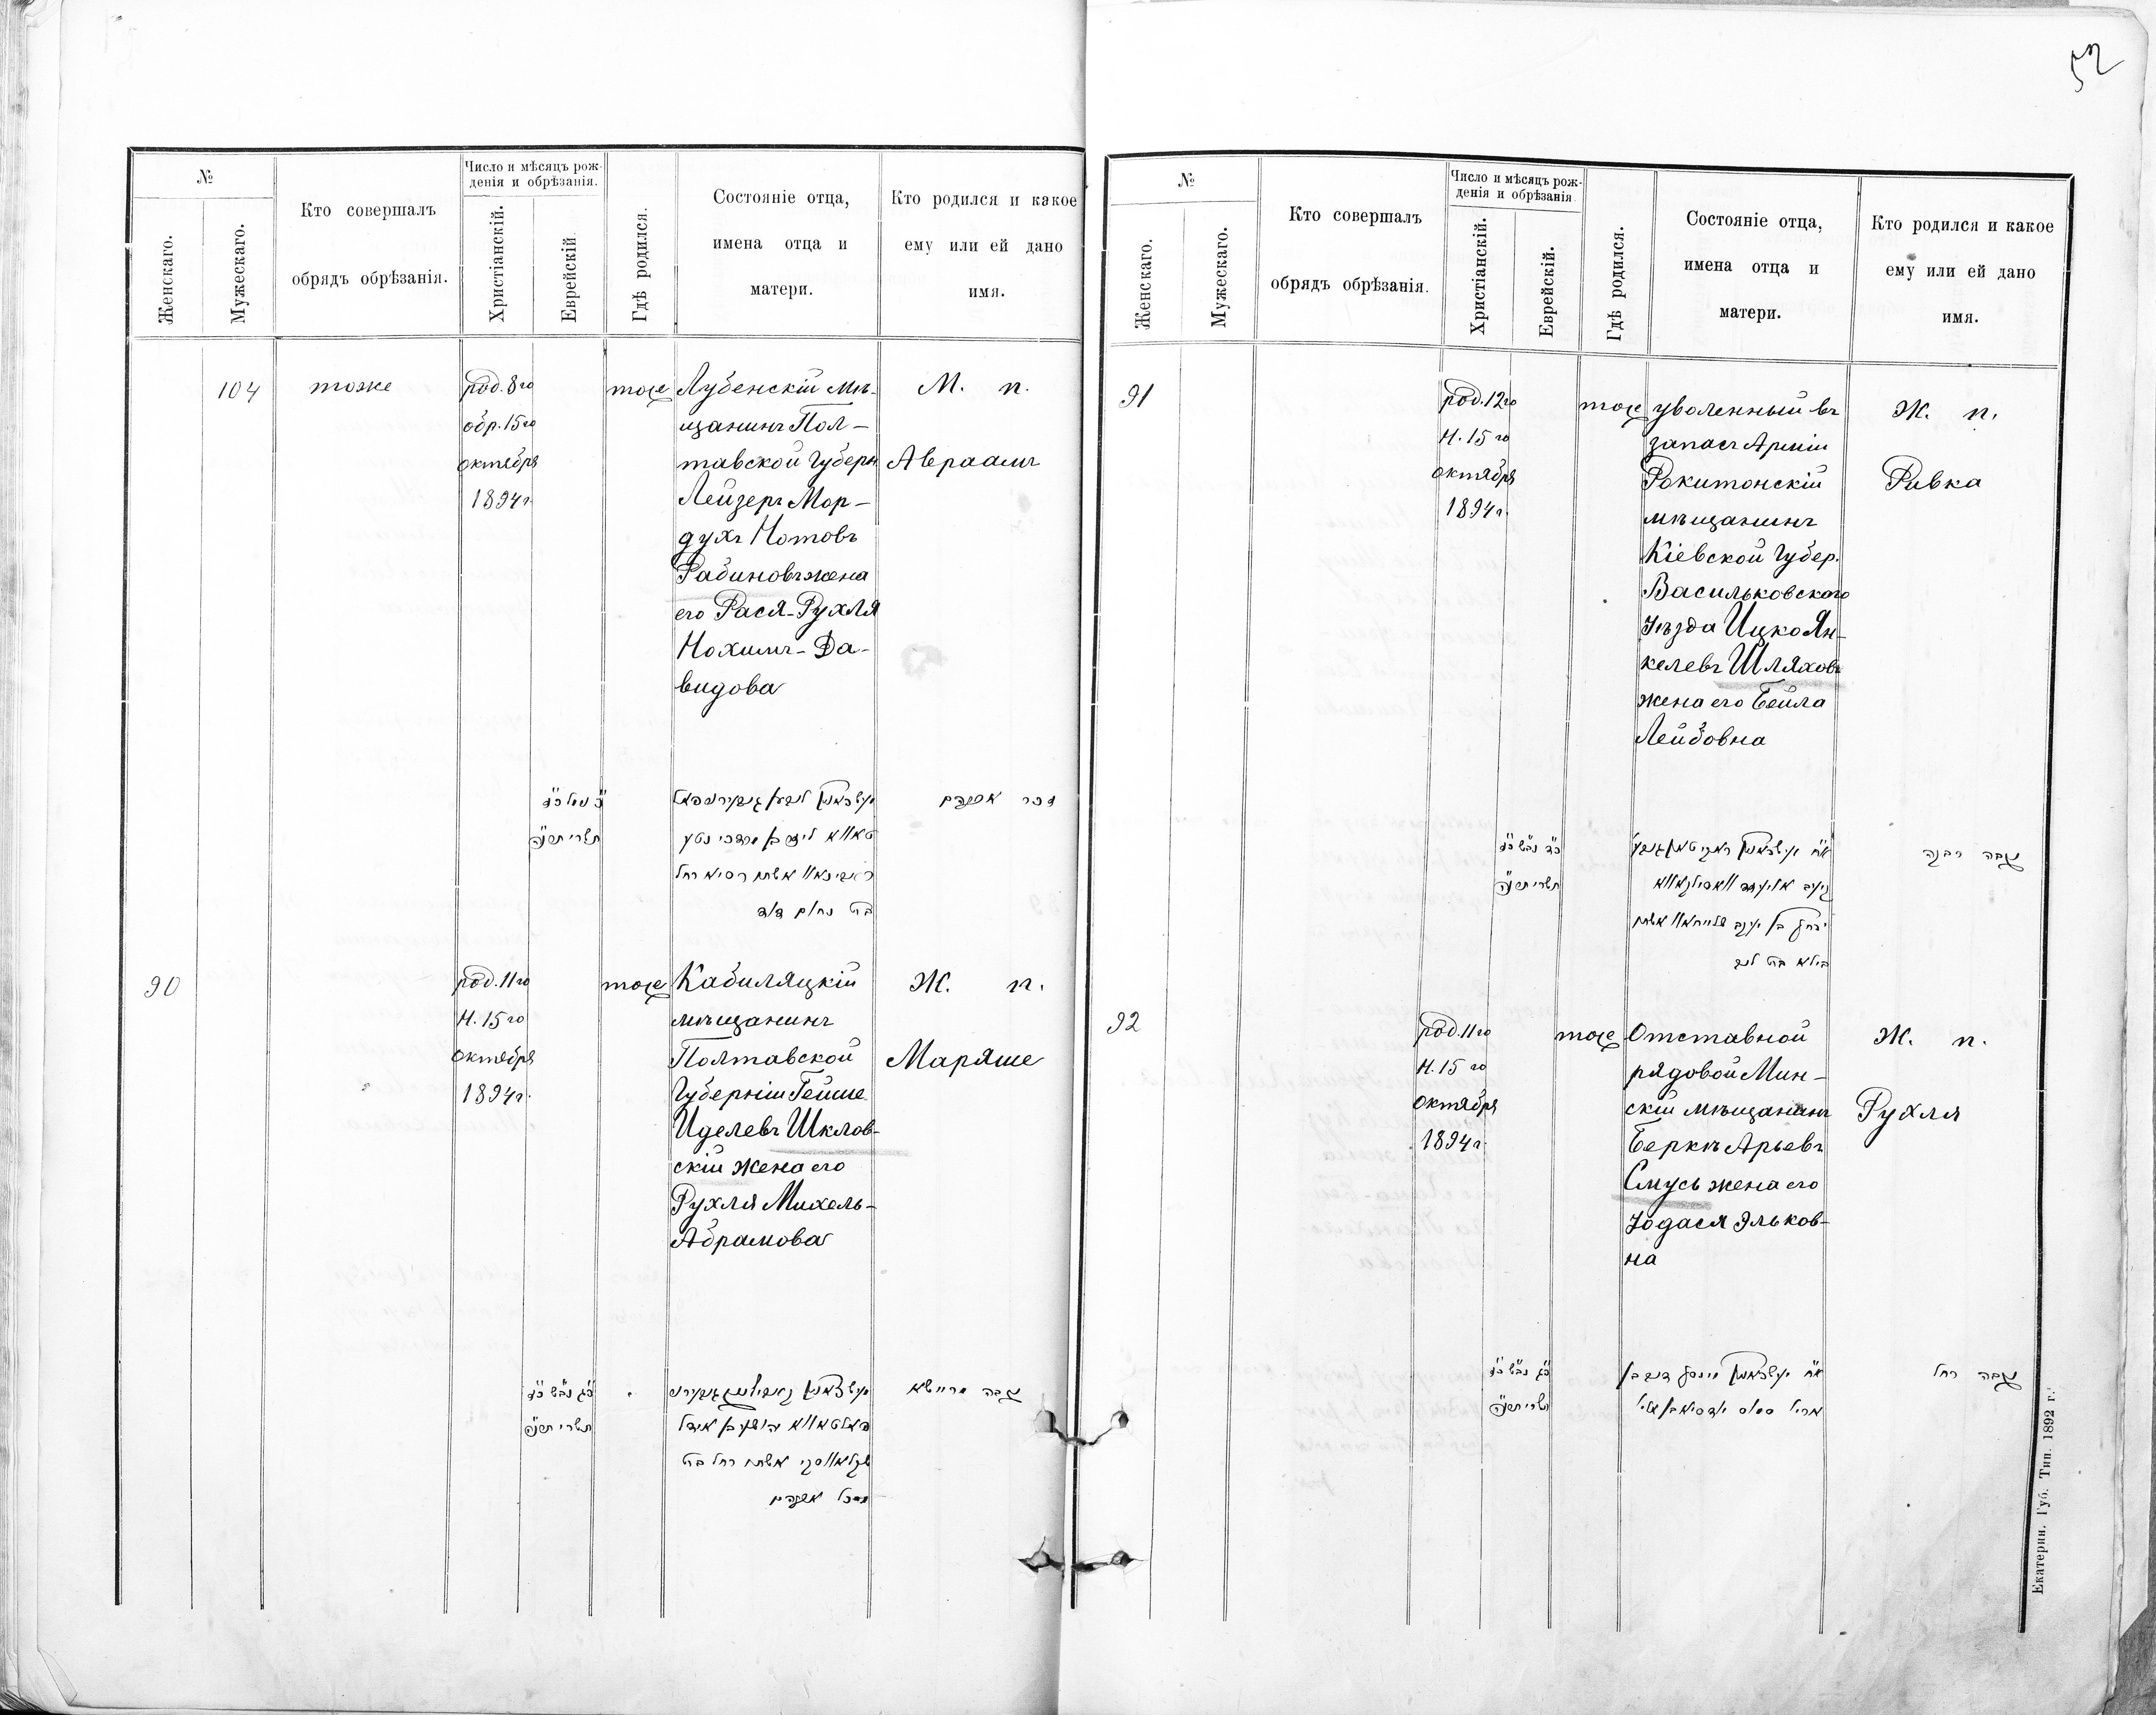 52
№
Женскаго.
Мужескаго.
Кто совершалъ
обрядъ обрѣзанія.
Число и мѣсяцъ рож-
денія и обрѣзанія.
Христіанскій.
Еврейскій
Гдѣ родился.
Состояніе отца,
имена отца и
матери.
Кто родился и какое
ему или ей дано
имя.
104
тоже
род. 8го
обр. 15го
октября
1894г
тоже
Лубенскій мѣ-
щанинъ Пол-
тавской Губерн
Лейзеръ Мор-
духъ Нотовъ
Рабиновъ жена
его Рася-Рухля
Нохимъ-Да-
видова
М. п.
Авраамъ
תשרי תרנ״ה
זכר אברהם
בת נחום דוד
90
род. 11го
Н. 15го
октября
1894г.
тоже
Кабиляцкій
мѣщанинъ
Полтавской
Губерніи Гейше
Иделевъ Шклов-
скій жена его
Рухля Михель-
Абрамова
Ж. п.
Маряше
תשרי תרנ״ה
נקבה מריישא
מיכל אברהם
№
Женскаго.
Мужескаго.
Кто совершалъ
обрядъ обрѣзанія.
Число и мѣсяцъ рож-
денія и обрѣзанія.
Христіанскій.
Еврейскій.
Гдѣ родился.
Состояніе отца,
имена отца и
матери.
Кто родился и какое
ему или ей дано
имя.
91
род. 12го
Н. 15го
октября
1894г.
тоже
уволенный въ
запасъ Арміи
Рокитонскій
мѣщанинъ
Кіевской Губер.
Васильковского
уѣзда Ицко Ян-
келевъ Шляховъ
жена его Бейла
Лейбовна
Ж. п.
Ривка
תשרי תרנ״ה
נקבה רבקה
ביילא בת לייב
92
род. 11го
Н. 15го
октября
1894г.
тоже
Отставной
рядовой Мин-
скій мѣщанинъ
Беркъ Арьевъ
Смусь жена его
Юдася Эльков-
на
Ж. п.
Рухля
תשרי תרנ״ה
נקבה רחל
Екатерин. Губ. Тип. 1892 г.